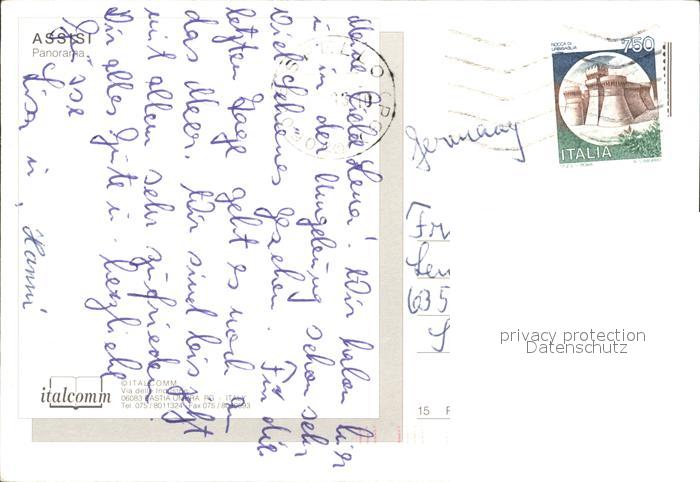 ASSISI
Panorama
Meine liebe Lena! Wir haben hier
u. in der Umgebung schon sehr
viel Schönes gesehen. Für die
letzten Tage geht es noch an
das Meer. Wir sind bis jetzt
mit allem sehr zufrieden.
Dir alles Gute u. herzliche
Grüsse
Lisa u. Hanni
italcomm
© ITALCOMM
Via dell'Industria
06083 BASTIA UMBRA PG - ITALY
Tel. 075/8011324 Fax 075/
ROCCA DI
URBISAGLIA
750
ITALIA
Germany
Fr
Len
635
S
privacy protection
Datenschutz
15